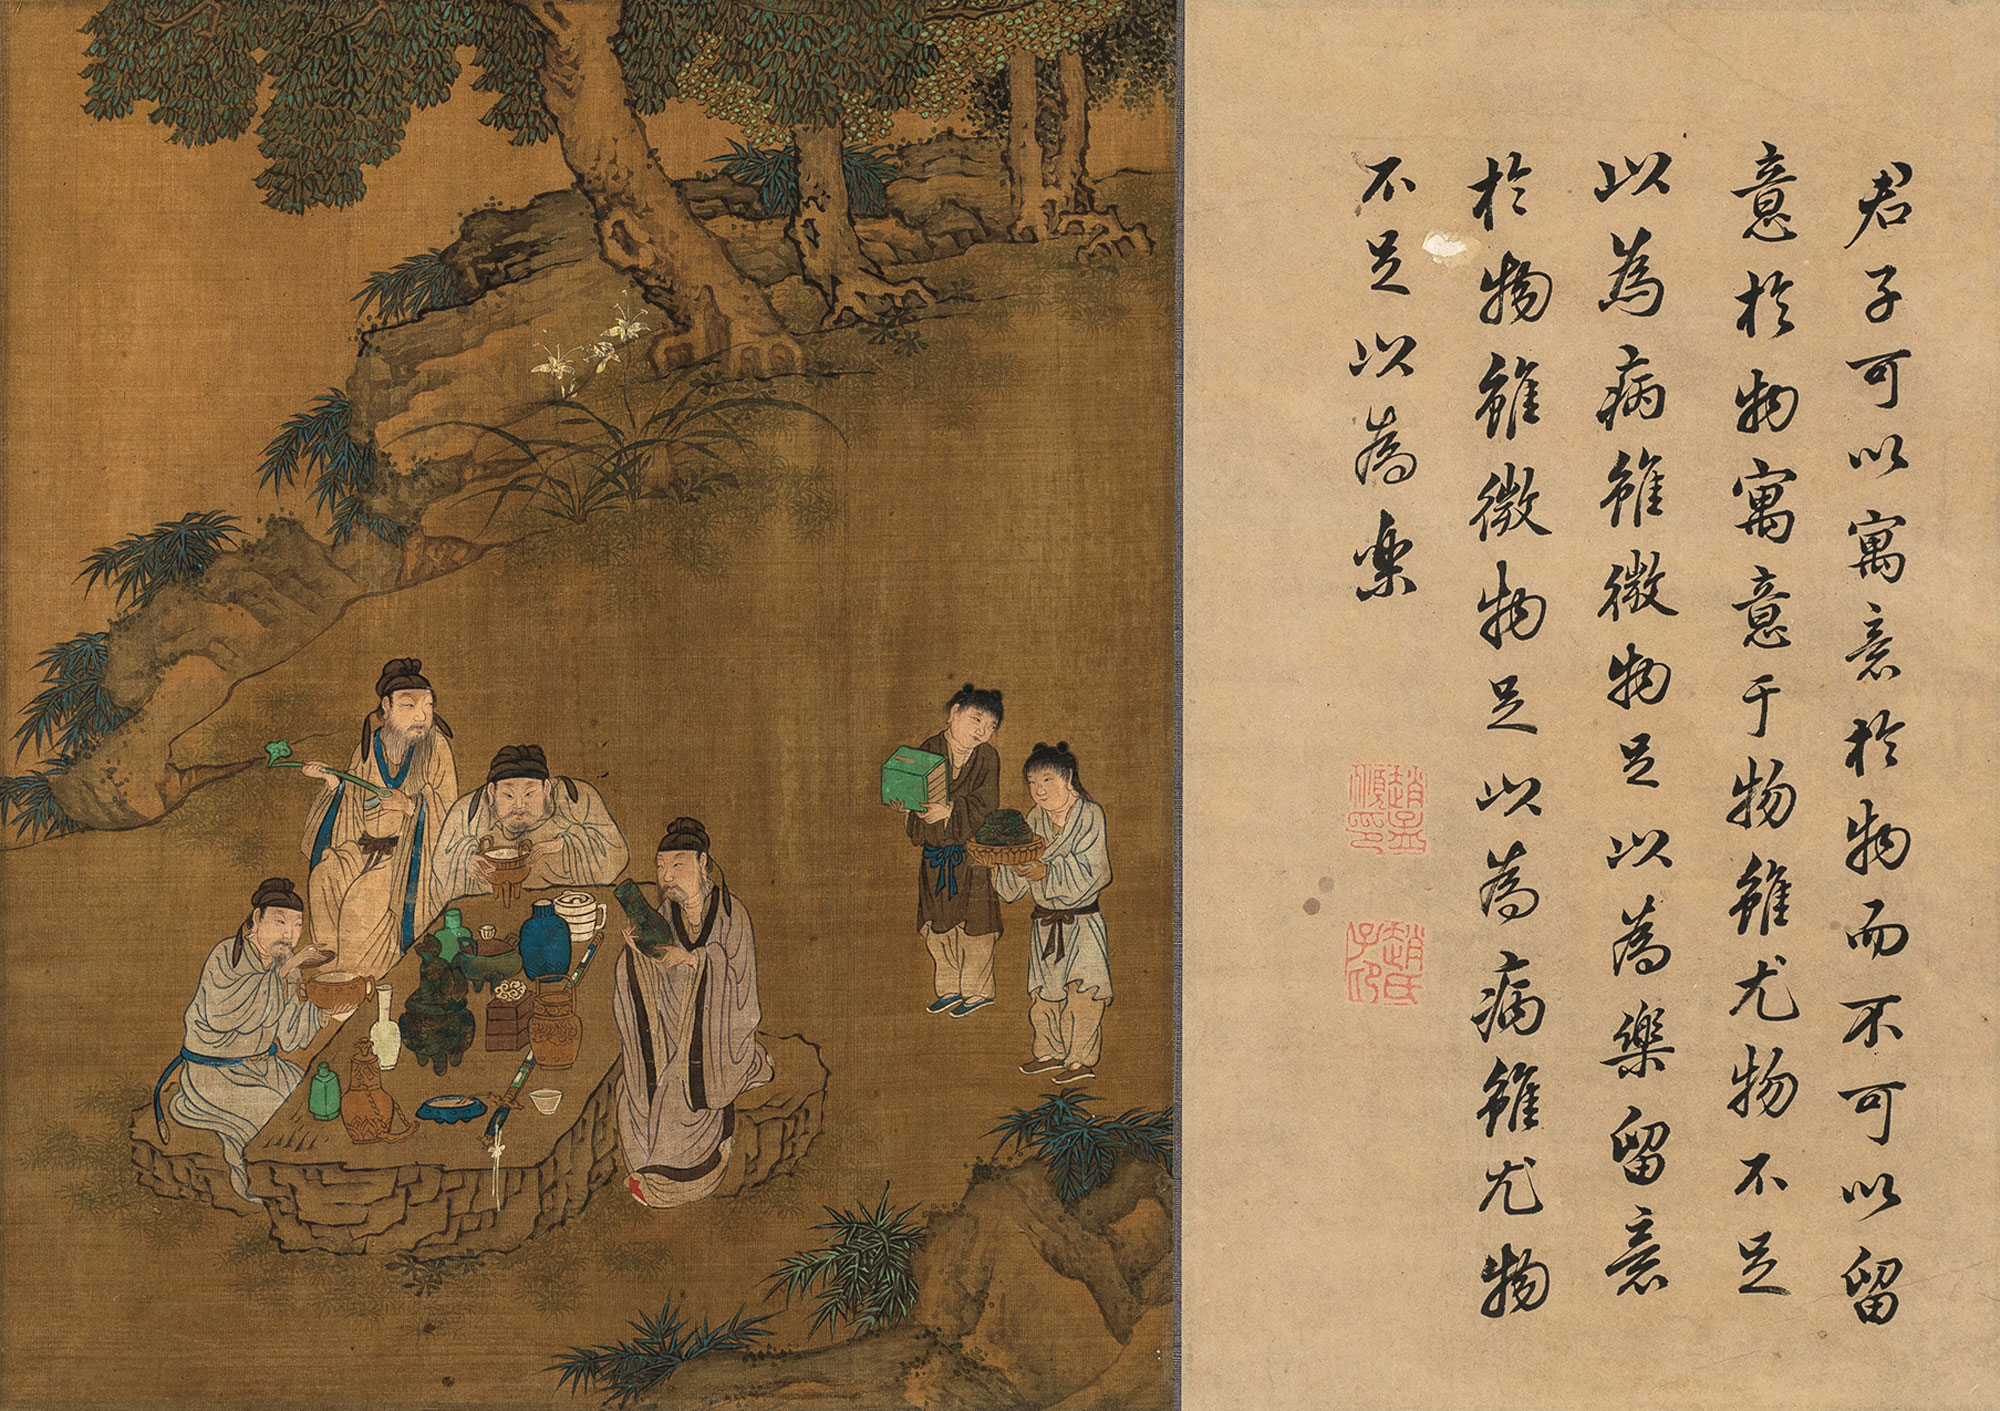 君子可以寓意於物而不可以留
意於物寓意于物雖尤物不足
以為病雖微物足以為樂留意
於物雖微物足以為病雖尤物
不足以為樂
趙孟頫印
趙氏子昂